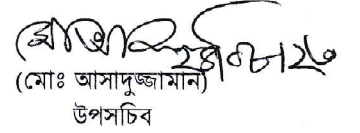 (মোঃ আসাদুজ্জামান)
উপসচিব